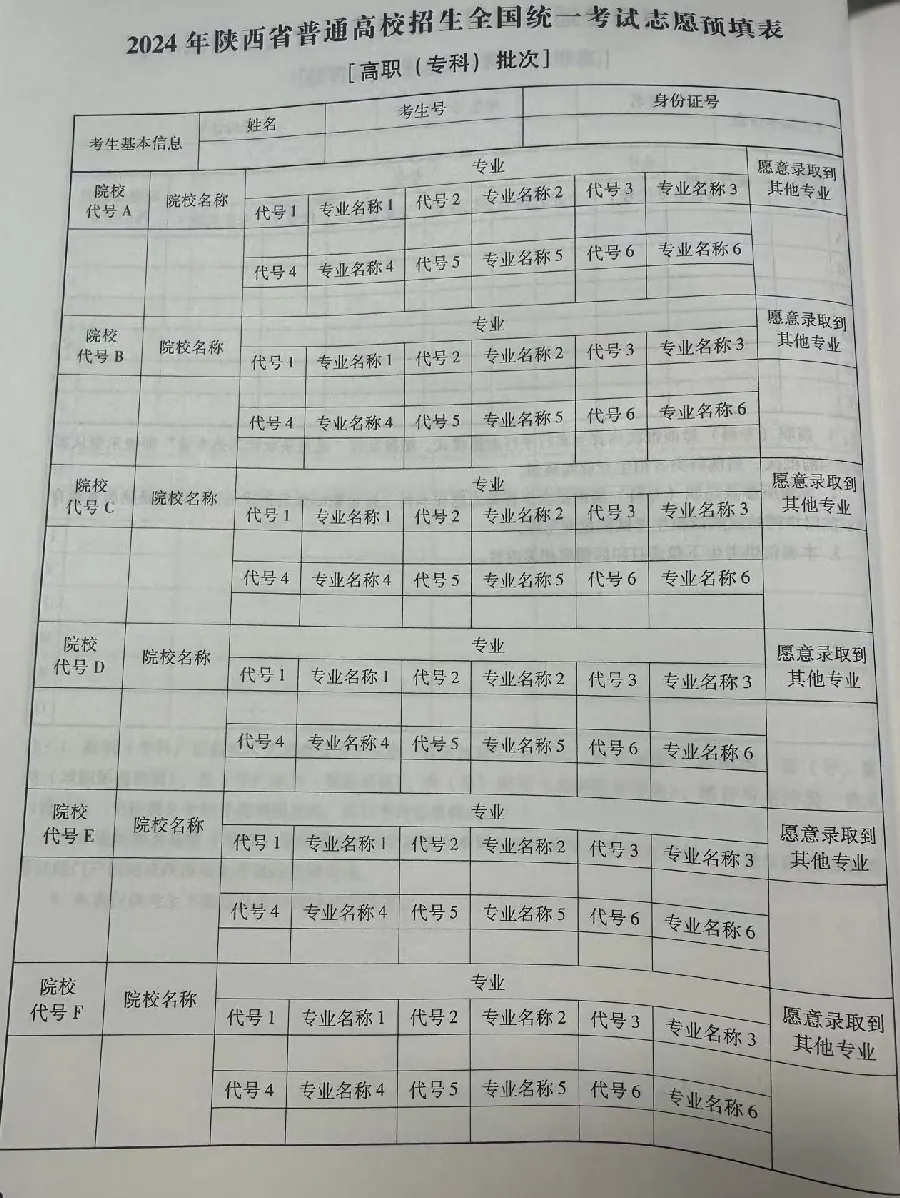 2024年陕西省普通高校招生全国统一考试志愿预填表
[高职（专科）批次]
考生基本信息 姓名 考生号 身份证号
院校代号A 院校名称 专业 愿意录取到其他专业
代号1 专业名称1 代号2 专业名称2 代号3 专业名称3
代号4 专业名称4 代号5 专业名称5 代号6 专业名称6
院校代号B 院校名称 专业 愿意录取到其他专业
代号1 专业名称1 代号2 专业名称2 代号3 专业名称3
代号4 专业名称4 代号5 专业名称5 代号6 专业名称6
院校代号C 院校名称 专业 愿意录取到其他专业
代号1 专业名称1 代号2 专业名称2 代号3 专业名称3
代号4 专业名称4 代号5 专业名称5 代号6 专业名称6
院校代号D 院校名称 专业 愿意录取到其他专业
代号1 专业名称1 代号2 专业名称2 代号3 专业名称3
代号4 专业名称4 代号5 专业名称5 代号6 专业名称6
院校代号E 院校名称 专业 愿意录取到其他专业
代号1 专业名称1 代号2 专业名称2 代号3 专业名称3
代号4 专业名称4 代号5 专业名称5 代号6 专业名称6
院校代号F 院校名称 专业 愿意录取到其他专业
代号1 专业名称1 代号2 专业名称2 代号3 专业名称3
代号4 专业名称4 代号5 专业名称5 代号6 专业名称6